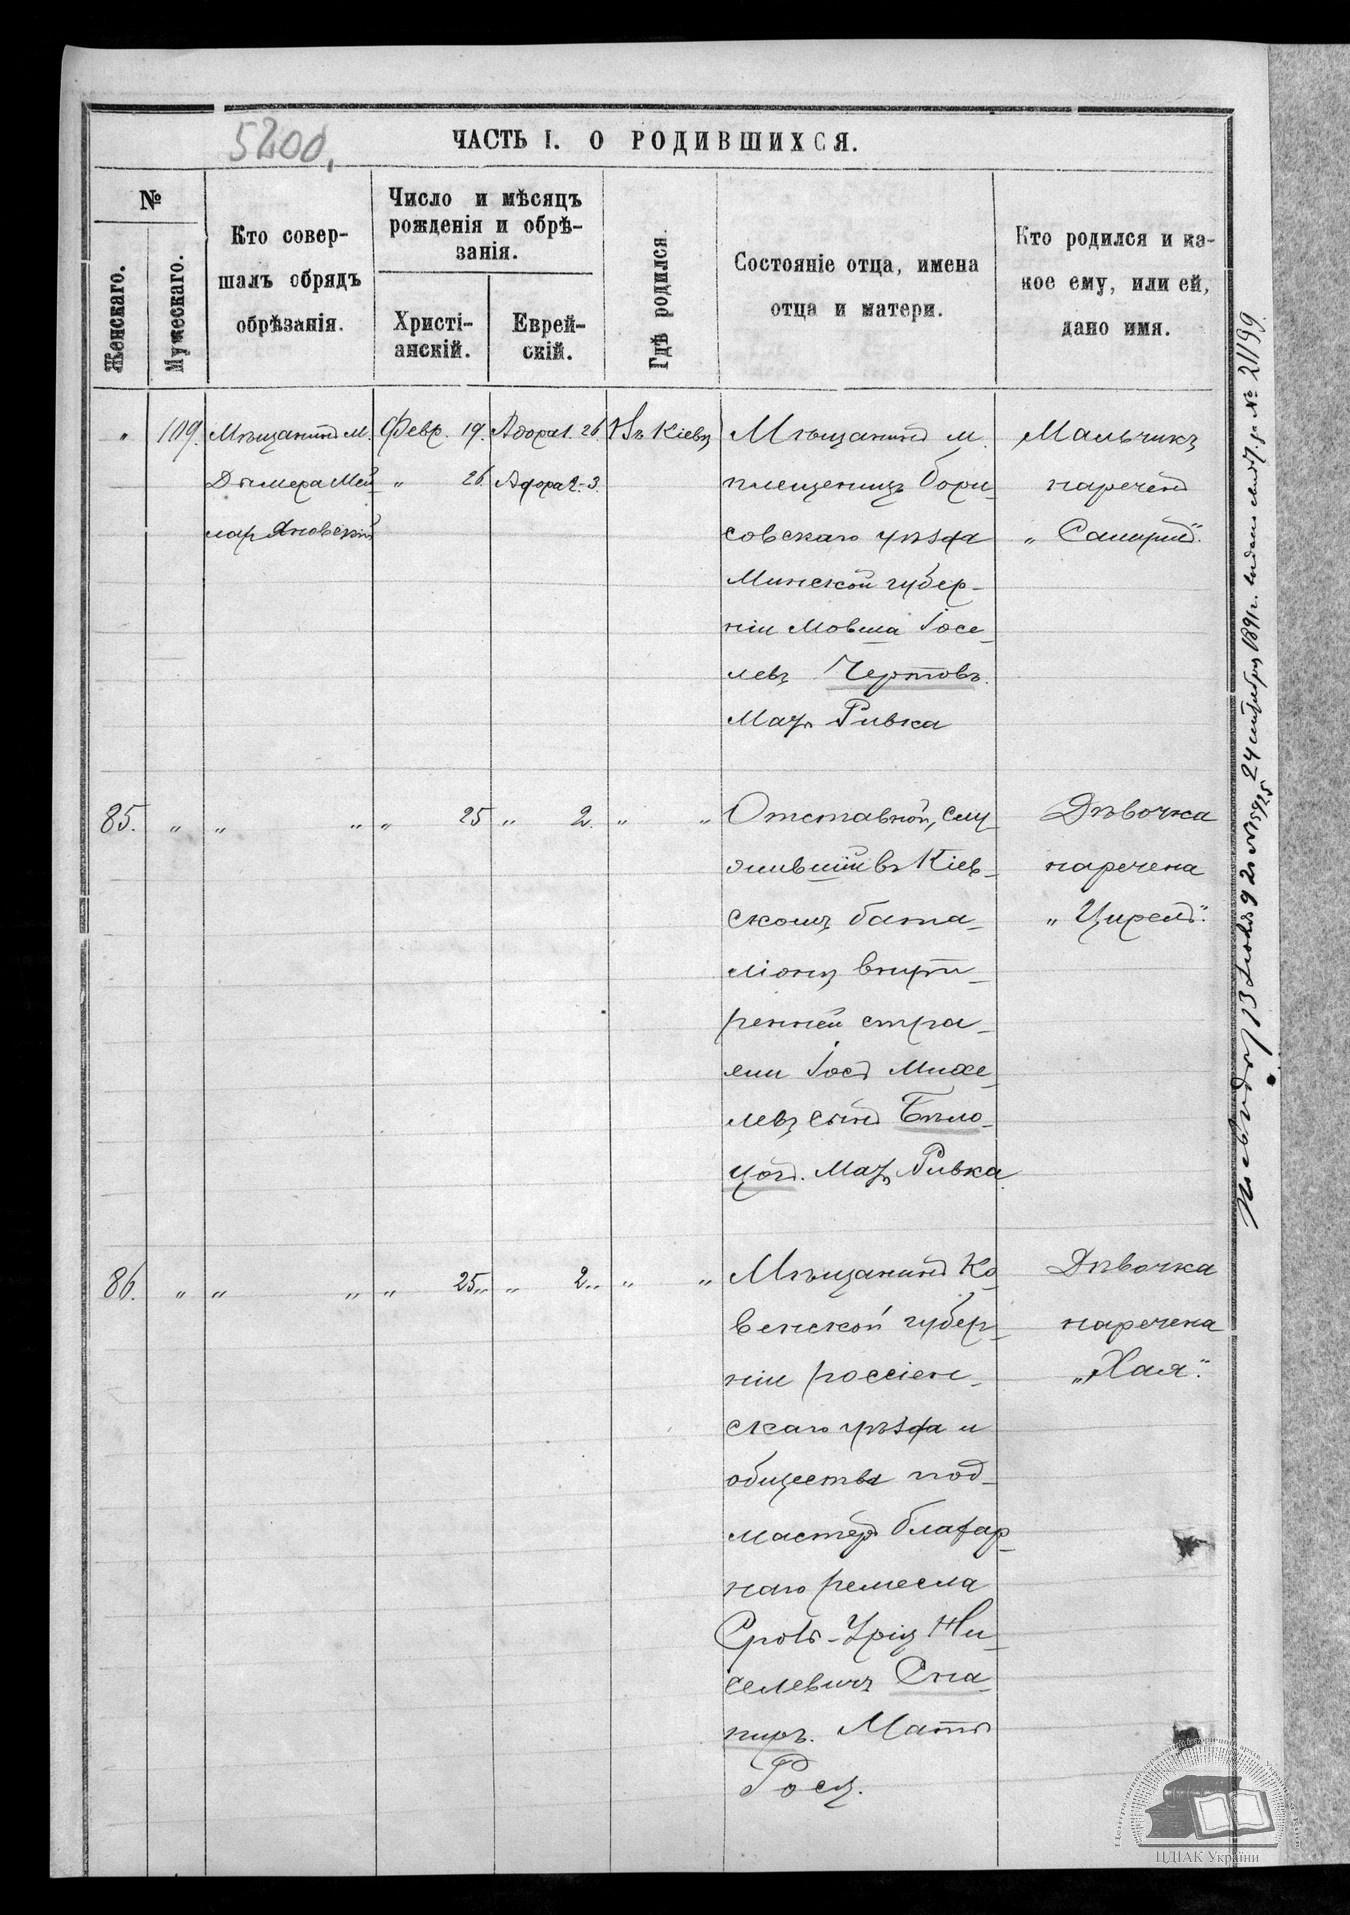 5200.
ЧАСТЬ I. О РОДИВШИХСЯ.
№
Женскаго.
Мужескаго.
Кто совер-
шалъ обрядъ
обрѣзанія.
Число и мѣсяцъ
рожденія и обрѣ-
занія.
Христі-
анскій.
Еврей-
скій.
Гдѣ родился.
Состояніе отца, имена
отца и матери.
Кто родился и ка-
кое ему, или ей,
дано имя.
„ 109. Мѣщанинъ м.
Дымера Мей
лар Яновскій
Февр. 19.
„ 26.
Адора 1. 26
Адора 2. 3.
Въ Кіевѣ
Мѣщанинъ м.
плещеницъ бори-
совскаго уѣзда
Минской губер-
ніи Мовша Іосе-
левъ Чертовъ.
Мать Ривка
Мальчикъ
нареченъ
„
85. „ „ „ „ 25 „ 2. „ „
Отставной, слу
жившій въ Кіев-
скомъ бата-
ліонѣ внут-
ренней стра-
жи Іось Михе-
левъ сынъ Бѣло-
. Мать Ривка
Дѣвочка
наречена
„Цирель“.
86. „ „ „ „ 25„ „ 2„ „ „
Мѣщанинъ Ко
венской губер-
ніи россіен-
скаго уѣзда и
общества под-
мастеръ
наго ремесла
Ни-
селевичъ Сна-
пиръ. Мать
Роса.
Дѣвочка
наречена
„Хая“.
24 1891 г. № 21199
13 92 № 15925
ЦДІАК України